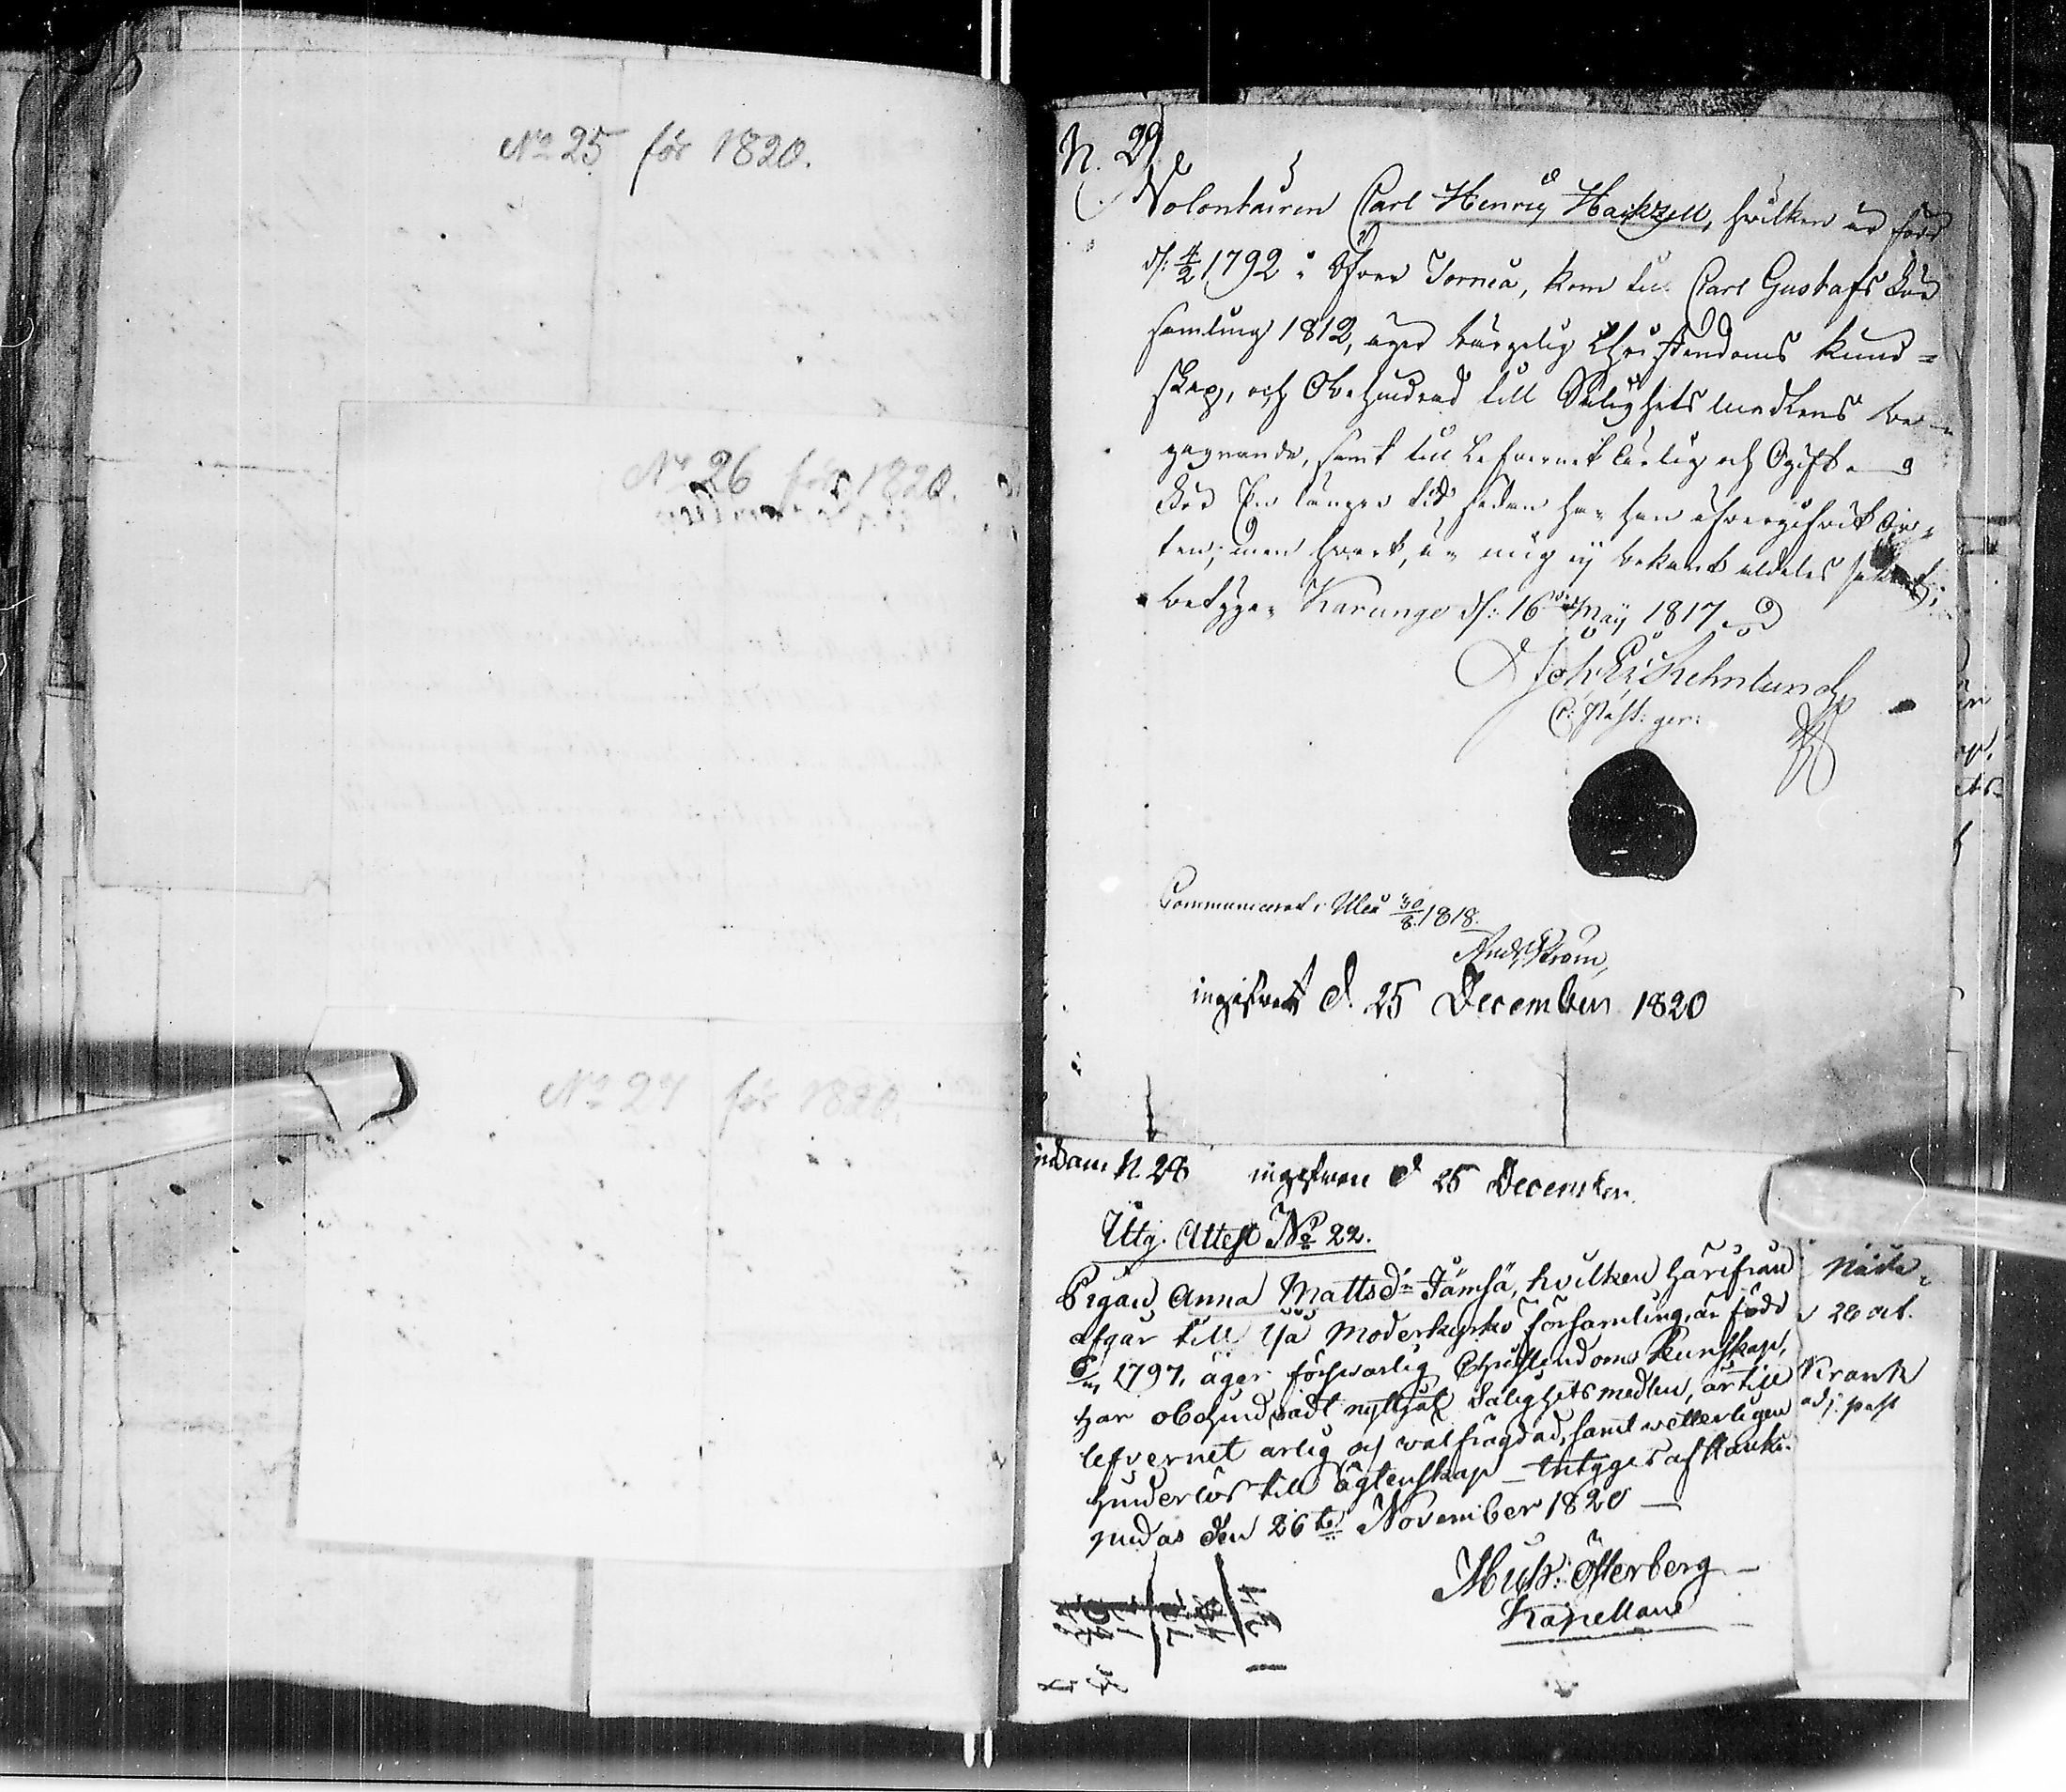 No 25 för 1820.
No 26 för 1820.
No 27 för 1820.
N. 29
Volontairen Carl Henric Hackzell, hvilken är född
d: 4/2 1792 i Öfver Torneå, kom till Carl Gustafs För
samling 1812, äger bärgelig Christendoms kund=
skap, och Obehindrad till Salighets Medlens be-
gagnande, samt till Lefvernet ärlig och Ogift.
För En längre tid sedan har han öfvergifvit Or-
ten; men hvart, är mig ej bekant aldeles
betygar Karungi d: 16de Maij 1817.
Joh: Ehrenlund
C: Past: ger:
Communicerat i Uleå 30/8 1818.
ingifvet d. 25 December 1820
N. 28 ingifven d 25 December
Utg. Attest No 22.
Pigan Anna Mattsdr Jämsä, hvilken härifrån
afgår till Ijå Moderkyrko församling, är född
1797, äger försvarlig Christendoms kunskap,
har obehindradt nyttjat Salighetsmedlen, är till
lefvernet ärlig och välfrägdad, samt vetterligen
hinderlös till ägtenskap — intygas af Hauki-
pudas den 26te November 1820 —
Österberg
Kapellan
Näste
d 26 oct.
Krank
adj: past